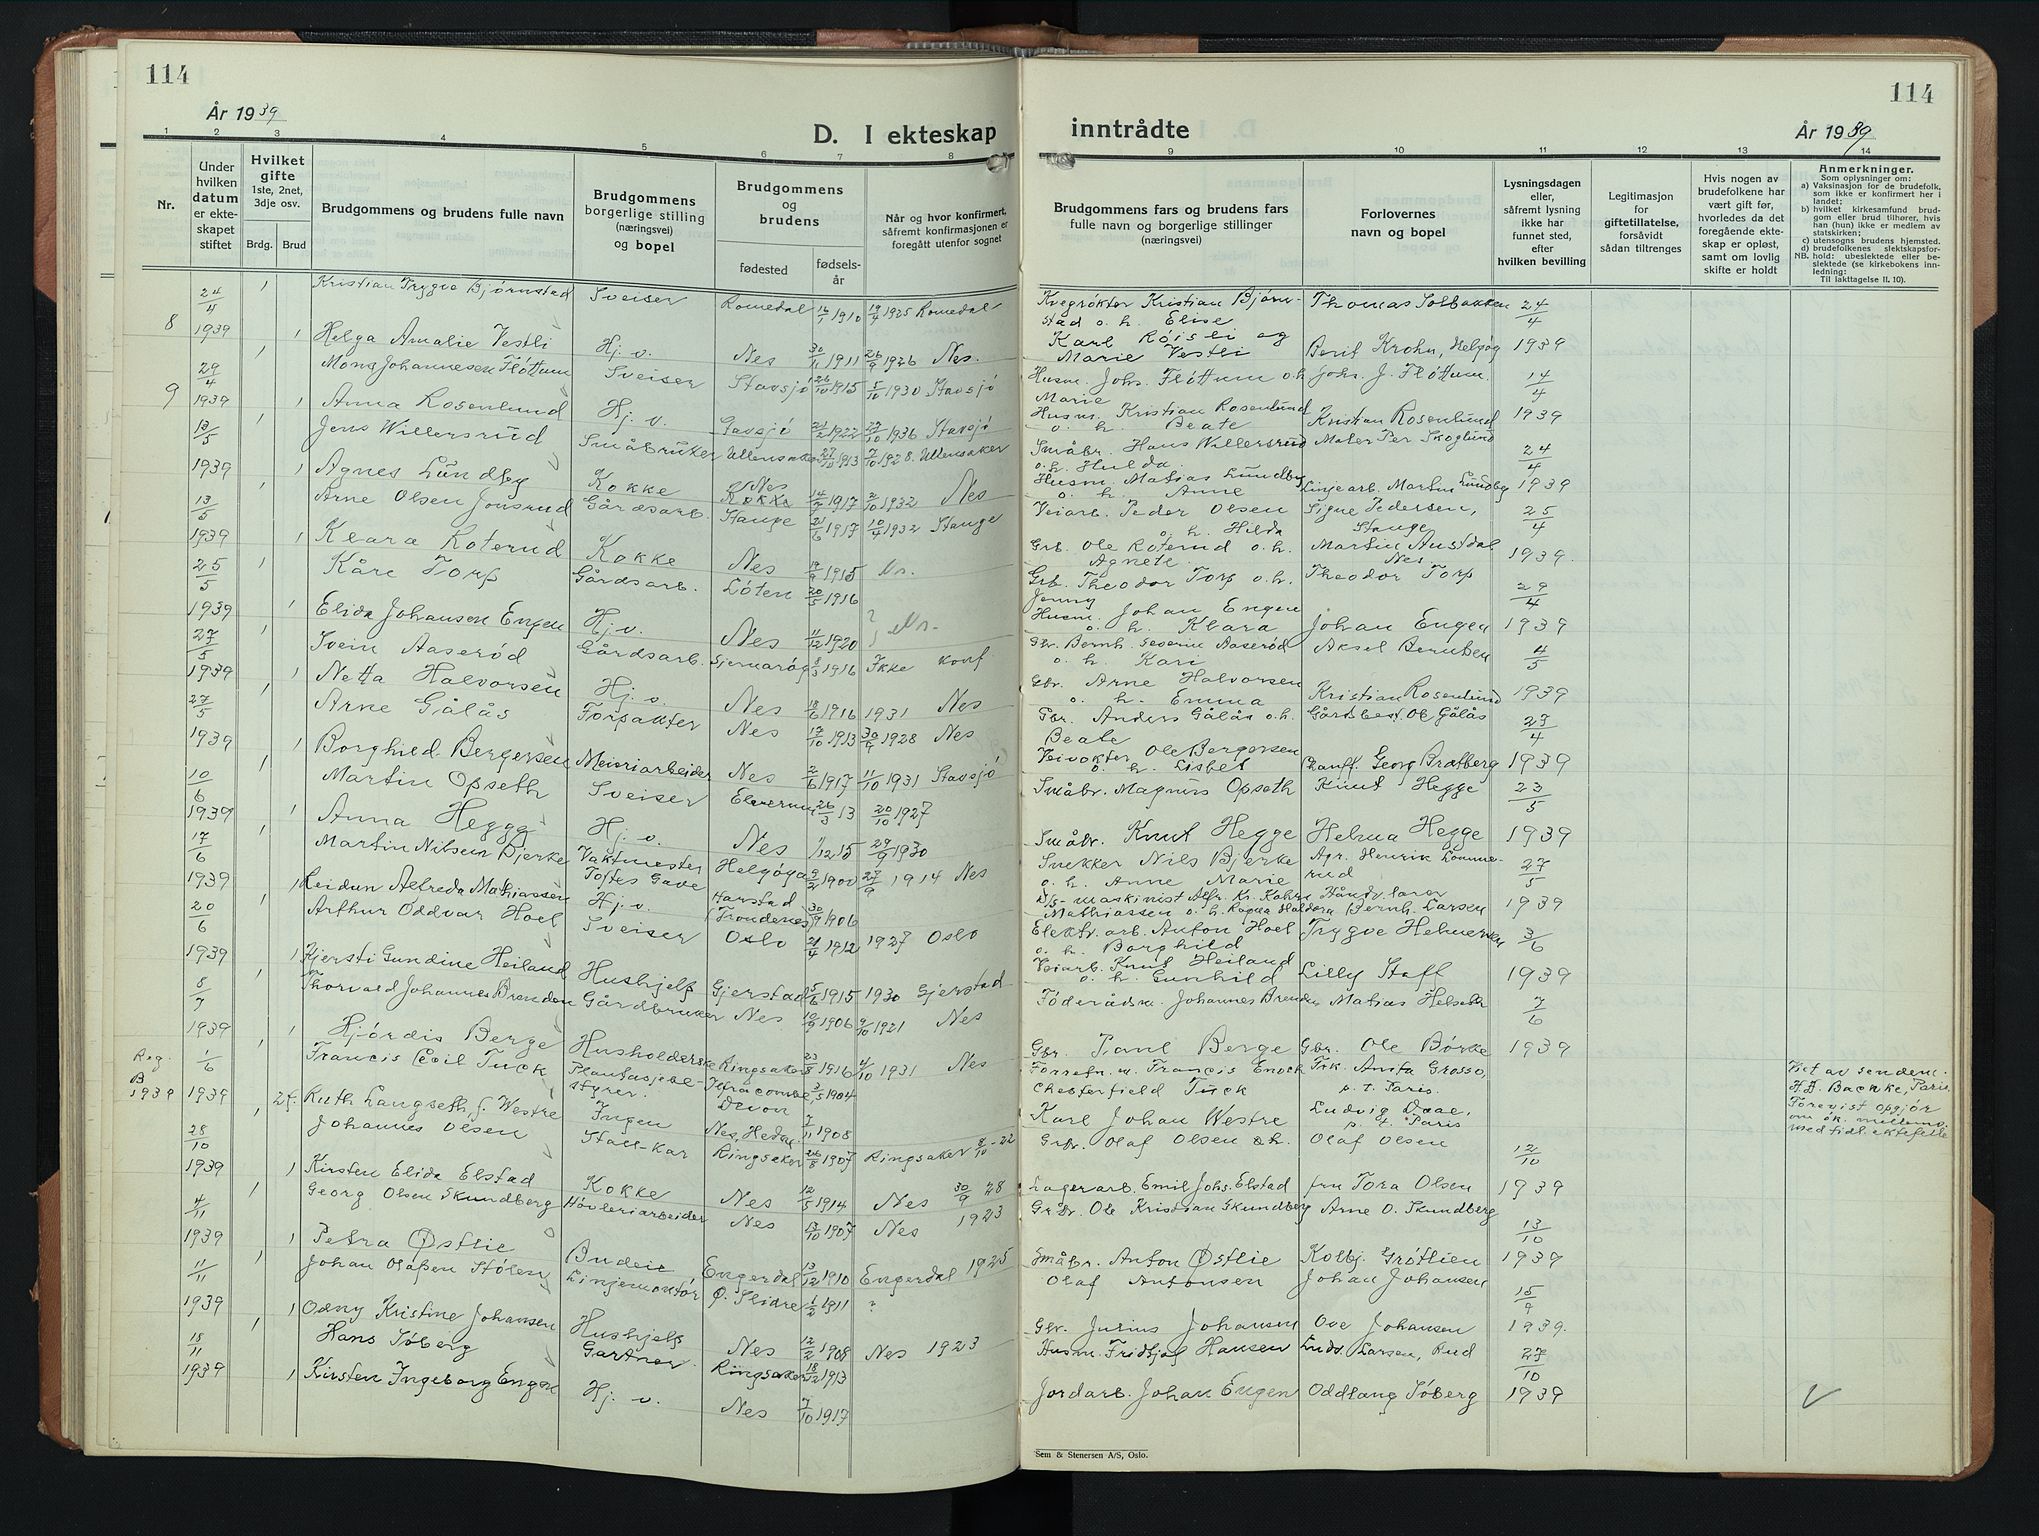 114
År 1939
D. I ekteskap
1 2 3 4 5 6 7 8
Nr.
Under hvilken datum er ekteskapet stiftet
Hvilket gifte 1ste, 2net, 3dje osv.
Brdg. Brud
Brudgommens og brudens fulle navn
Brudgommens borgerlige stilling (næringsvei) og bopel
Brudgommens og brudens
fødested fødselsår
Når og hvor konfirmert, såfremt konfirmasjonen er foregått utenfor sognet
8 24/4 1 Kristian Trygve Bjørnstad Sveiser Romedal 16/1 1910 19/4 1925 Romedal
1939 1 Helga Amalie Vestli Hj. v. Nes 30/11 1911 26/9 1926 Nes.
9 29/4 1 Mons Johannesen Fløttum Sveiser Stavsjø 26/10 1915 5/10 1930 Stavsjø
1939 1 Anna Rosenlund Hj. v. Stavsjø 1922 1936 Stavsjø
13/5 1 Jens Willersrud Småbruker Ullensaker 27/10 1913 7/10 1928. Ullensaker
1939 1 Agnes Lundby Kokke Nes 1917 2/10 1932 Nes
13/5 1 Arne Olsen Jonsrud Gårdsarb. Stange 21/6 1917 10/4 1932 Stange
1939 1 Klara Roterud Kokke Nes 1915 Ns.
25/5 1 Kåre Torp Gårdsarb. Løten 20/5 1916
1939 1 Elida Johansen Engen Hj. v. Nes 11/12 1920 ? Ns.
27/5 1 Svein Aaserød Gårdsarb. 8/3 1916 Ikke konf
1939 1 Netta Halvorsen Hj. v. Nes 18/6 1916 1931 Nes
27/5 1 Arne Gålås Forpakter Nes 17/10 1913 30/9 1928 Nes
1939 1 Borghild Bergersen Meieriarbeider Nes 2/6 1917 11/10 1931 Stavsjø
10/6 1 Martin Opseth Sveiser Elverum 26/3 13 20/10 1927
1939 1 Anna Hegge Hj. v. Nes 1/12 15 1930
17/6 1 Martin Nilsen Bjerke Vaktmester Toftes Gave Helgøya 1900 27/9 1914 Nes
1939 1 Reidun Alfreda Mathiassen Hj. v. Harstad (Trondenes) 30/9 1906
20/6 1 Arthur Oddvar Hoel Sveiser Oslo 21/4 1912 1927 Oslo
1939 1 Kjersti Gundine Heiland Hushjelp Gjerstad 5/6 1915 1930 Gjerstad
8/7 1 Thorvald Johannes Brenden Gårdbruker Nes 10/9 1906 9/10 1921 Nes
1939 1 Hjørdis Berge Husholderske Ringsaker 23/8 1916 4/10 1931 Nes
Reg. B 1939 1/6 1 Francis Cecil Tuck Plantasjebestyrer. Ilfracombe, Devon 3/5 1904
1939 2g. Ruth Langseth f. Westre Ingen Nes, Hedm. 7/11 1908
28/10 1 Johannes Olsen Stall-kar Ringsaker 26/8 1907 Ringsaker 8/10-22
1939 1 Kirsten Elida Elstad Kokke Nes 12/5 1914 Nes 30/9 28
4/11 1 Georg Olsen Skundberg Høvleriarbeider Nes 13/10 1907 Nes 1923
1939 1 Petra Østlie Budeie Engerdal 13/12 1910 Engerdal 1925
11/11 1 Johan Olafsen Stølen Linjemontør Ø. Slidre 1/2 1911 ?
1939 1 Odny Kristine Johansen Hushjelp Nes 12/2 1908 Nes 1923
18/11 1 Hans Søberg Gartner. Ringsaker 18/12 1913
1939 1 Kirsten Ingeborg Engen Hj. v. Nes 7/10 1917
114
inntrådte
År 1939
9 10 11 12 13 14
Brudgommens fars og brudens fars fulle navn og borgerlige stillinger (næringsvei)
Forlovernes navn og bopel
Lysningsdagen eller, såfremt lysning ikke har funnet sted, efter hvilken bevilling
Legitimasjon for giftetillatelse, forsåvidt sådan tiltrenges
Hvis nogen av brudefolkene har vært gift før, hvorledes da det foregående ekteskap er opløst, samt om lovlig skifte er holdt
Anmerkninger.
Som oplysninger om:
a) Vaksinasjon for de brudefolk, som ikke er konfirmert her i landet;
b) hvilket kirkesamfund brudgom eller brud tilhører, hvis han (hun) ikke er medlem av statskirken;
c) utensogns brudens hjemsted.
d) brudefolkenes slektskapsforhold: ubeslektede eller beslektede (se kirkebokens innledning:
NB.
Til iakttagelse II. 10).
Kvegrøkter Kristian Bjørnstad o. h. Elise Thomas Solbakken 24/4
Karl Røisli og Marie Vestli Berit Krohn, Helgøy 1939
Husm. Johs. Fløttum o.h. Marie Johs. J. Fløttum. 14/4
Husm. Kristian Rosenlund o. h. Beate Kristian Rosenlund 1939
Småbr. Hans Willersrud o.h. Hulda. Maler Per Skoglund 24/4
Husm. Matias Lundby o. h. Anne Linjearb. Martin Lundby 1939
Veiarb. Peder Olsen o. h. Hilda Signe Pedersen, Stange 25/4
Grb. Ole Roterud o. h. Agnete. Martin Austdal Nes. 1939
Grb. Theodor Torp o. h. Jenny Theodor Torp 29/4
Husm. Johan Engen o. h. Klara Johan Engen 1939
Gbr. Bernh. Severin Aaserød o. h. Kari Aksel Berntsen 4/5
Gbr. Arne Halvorsen o. h. Emma Kristian Rosenlund 1939
Gbr. Anders Gålås o. h. Beate Gårdbest. Ole Gålås 27/4
Veivokter Ole Bergersen o. h. Lisbet Chauff. Georg Bratberg 1939
Småbr. Magnus Opseth Knut Hegge 23/5
Småbr. Knut Hegge Helma Hegge 1939
Snekker Nils Bjerke o. h. Anne Marie Agr. Henrik Lommerud 27/5
D/s-maskinist Alfr. Kr. Kahrs Mathiassen o. h. Ragna Haldora Håndv.lærer Bernh. Larsen 1939
Elektr. arb. Anton Hoel o. h. Borghild Trygve Helmersen 3/6
Veiarb. Knut Heiland o. h. Gunhild Lilly Staff 1939
Føderådsm. Johannes Brenden Matias Helseth 7/6
Gbr. Paul Berge Gbr. Ole Børke 1939
Forretn. m. Francis Enock Chesterfield Tuck Frk. Anita Grosso, p. t. Paris. Viet av sendem. H. H. Bachke, Paris. Forevist opgjør om øk. mellomv. med tidl. ektefelle
Karl Johan Westre Ludvig Daae, p. t. Paris
Grbr. Olaf Olsen o. h. Olaf Olsen 12/10
Lagerarb. Emil Johs. Elstad fru Tora Olsen 1939
Grdbr. Ole Kristian Skundberg Arne O. Skundberg 13/10
Småbr. Anton Østlie Kolbj. Grøtlien 1939
Olaf Antonsen Johan Johansen 15/9
Gbr. Julius Johansen Ove Johansen 1939.
Husm. Fridtjof Hansen Ludv. Larsen, Rud 27/10
Jordarb. Johan Engen Oddlaug Søberg 1939
Sem & Stenersen A/S, Oslo.